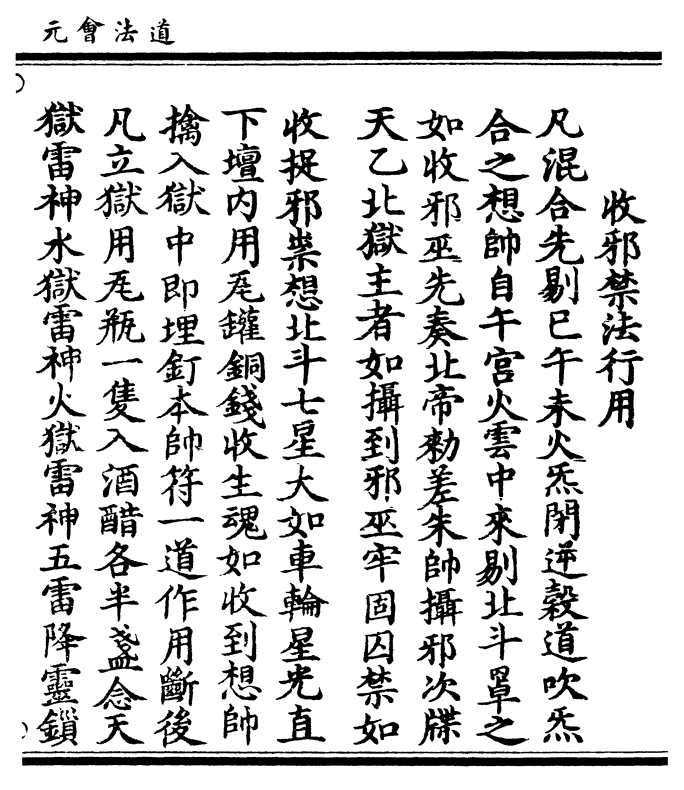 道法會元
收邪禁法行用
凡混合先剔巳午未火炁閉逆穀道吹炁
合之想帥自午宮火雲中來剔北斗罩之
如收邪巫先奏北帝勑差朱帥攝邪次牒
天乙北獄主者如攝到邪巫牢固囚禁如
收捉邪祟想北斗七星大如車輪星光直
下壇内用瓦罐銅錢收生魂如收到想帥
擒入獄中即埋釘本帥符一道作用斷後
凡立獄用瓦瓶一隻入酒醋各半盞念天
獄雷神水獄雷神火獄雷神五雷降靈鎻